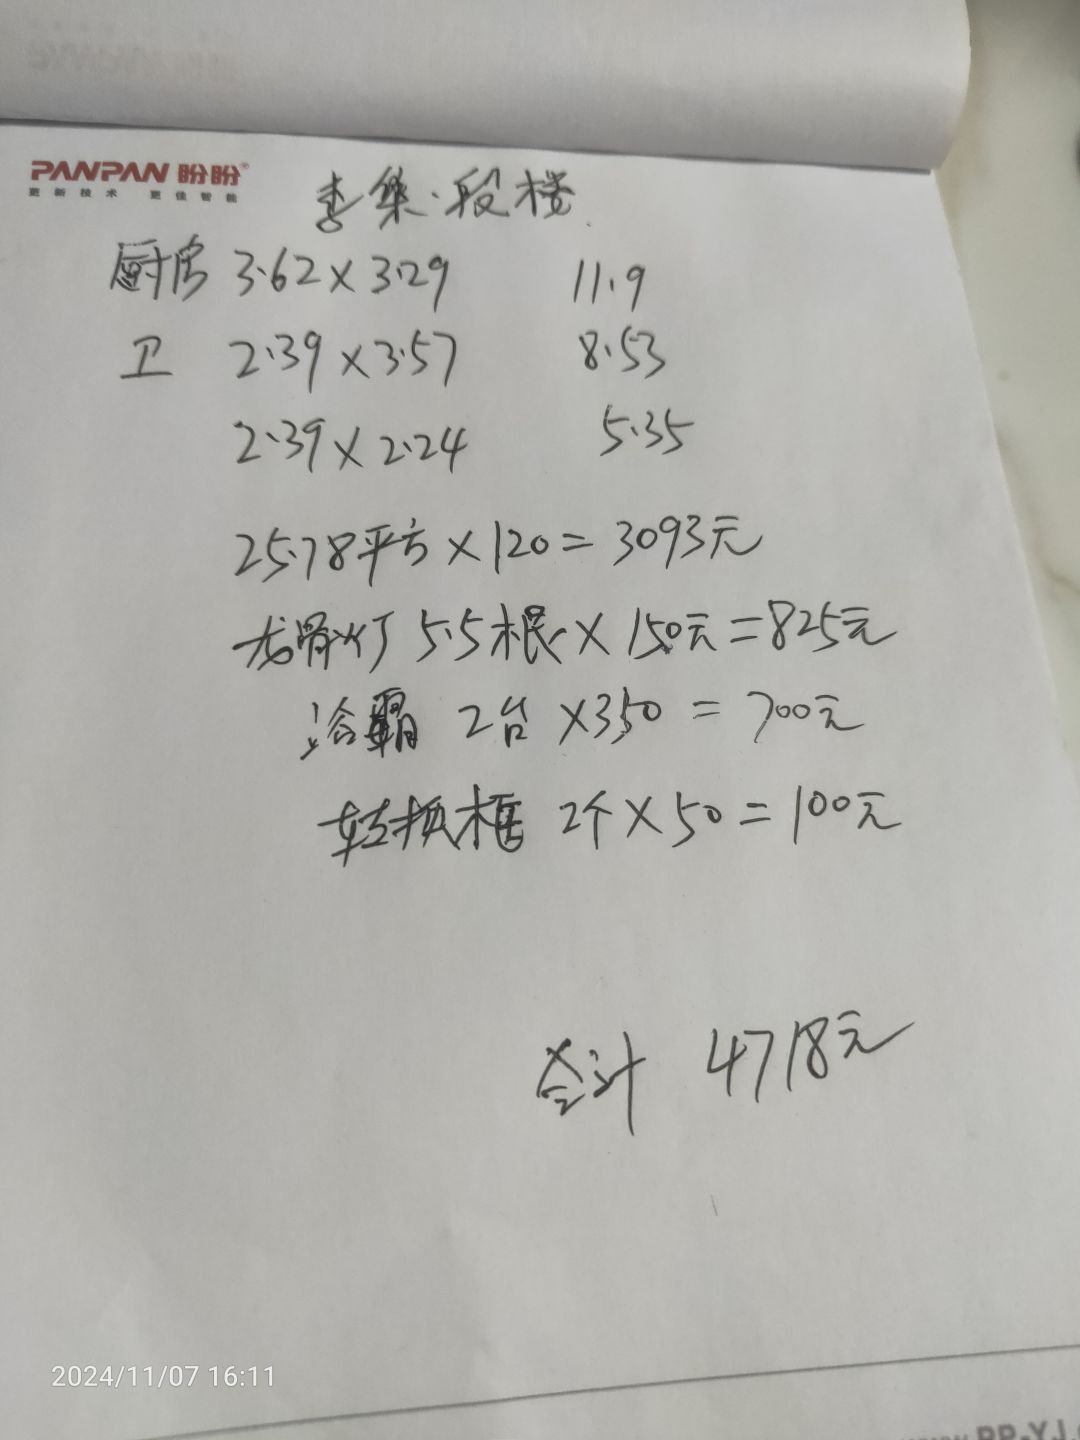 PANPAN 盼盼®
更新技术 更佳智能
李集·段楼
厨房 3.62×3.29 11.9
卫 2.39×3.57 8.53
2.39×2.24 5.35
25.78平方×120=3093元
龙骨灯 5.5根×150元=825元
浴霸 2台×350=700元
转换框 2个×50=100元
合计 4718元
2024/11/07 16:11